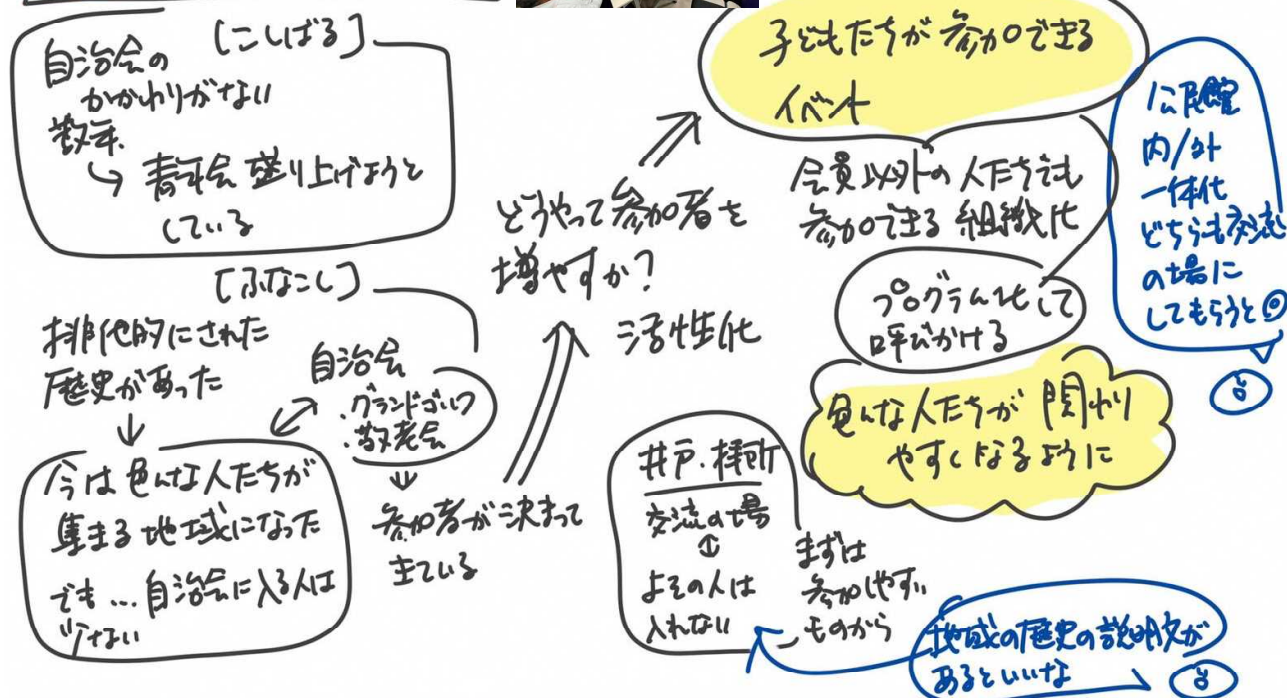 [こしばる]
自治会の
かかわりがない
数年
↳ 青年会 盛り上げようと
している
[ふなこし]
排他的にされた
歴史があった
↓
今は色んな人たちが
集まる地域になった
でも…自治会に入る人は
少ない
自治会
・グランドゴルフ
・敬老会
↓
参加者が決まって
きている
どうやって参加者を
増やすか?
活性化
子どもたちが参加できる
イベント
会員以外の人たちでも
参加できる組織化
プログラム化して
呼びかける
色んな人たちが関わり
やすくなるように
井戸・拝所
交流の場
⇕
よその人は
入れない
まずは
参加しやすい
ものから
公民館
内/外
一体化
どちらも交流
の場に
してもらうと◎
地域の歴史の説明文が
あるといいな